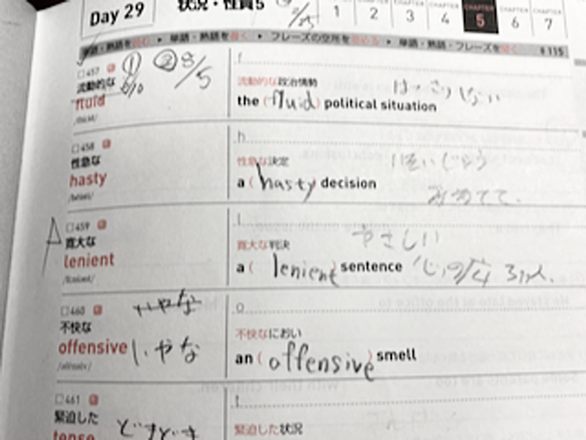 Day 29
状況・性質5
1 2 3 4 CHAPTER 5 6 7
単語・熟語を読む • 単語・熟語を書く • フレーズの空所を埋める • 単語・熟語・フレーズを聴く
□457 ① ② 8/5
流動的な
fluid
f
流動的な政治情勢
the (fluid) political situation
はっきりしない
□458
性急な
hasty
h
性急な決定
a (hasty) decision
□459
寛大な
lenient
l
寛大な判決
a (lenient) sentence
やさしい
□460
不快な
offensive
いやな
いやな
o
不快なにおい
an (offensive) smell
□461
緊迫した
tense
t
緊迫した状況